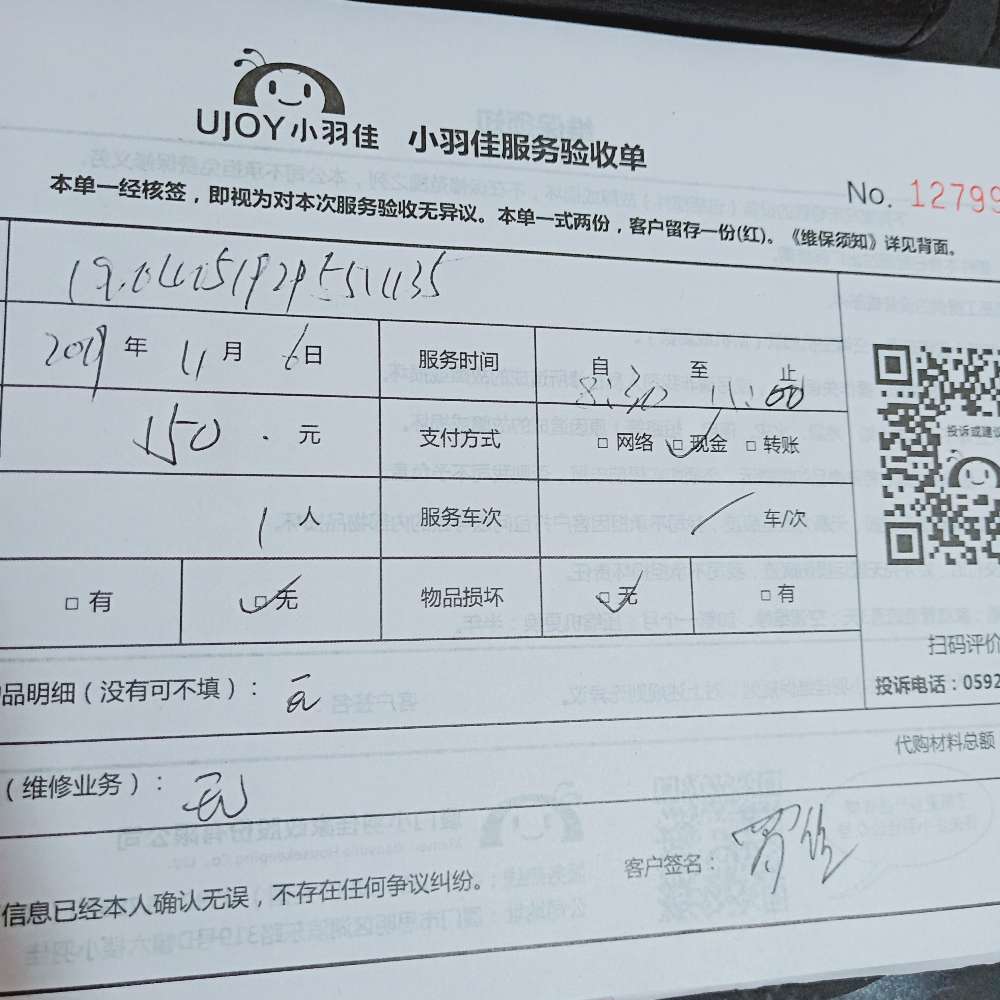 UJOY小羽佳 小羽佳服务验收单
No. 12799
本单一经核签，即视为对本次服务验收无异议。本单一式两份，客户留存一份(红)。《维保须知》详见背面。
2019 年 11 月 6 日 服务时间 自 8:30 至 11:00 止
150 . 元 支付方式 □ 网络 □ 现金 □ 转账
投诉或建议
1 人 服务车次 / 车/次
□ 有 □ 无 物品损坏 □ 无 □ 有
扫码评价
投诉电话：0592
品明细（没有可不填）： 无
代购材料总额
（维修业务）： 无
客户签名：
信息已经本人确认无误，不存在任何争议纠纷。